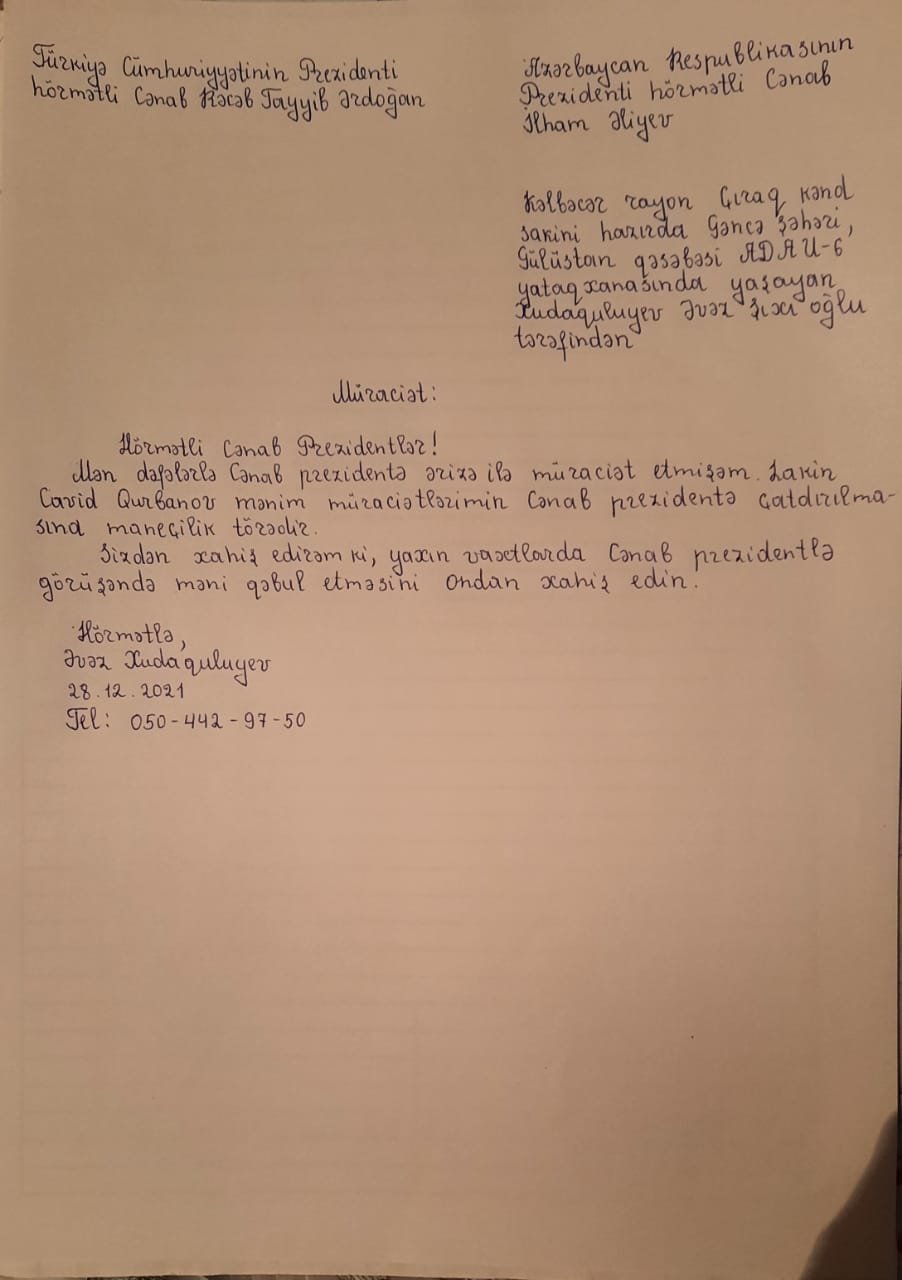 Türkiyə Cümhuriyyətinin Prezidenti
hörmətli Cənab Rəcəb Tayyib Ərdoğan
Azərbaycan Respublikasının
Prezidenti hörmətli Cənab
İlham Əliyev
Kəlbəcər rayon Çıraq kənd
sakini hazırda Gəncə şəhəri,
Gülüstan qəsəbəsi ADAU-6
yataqxanasında yaşayan
Xudaquluyev Əvəz Şıxı oğlu
tərəfindən
Müraciət:
Hörmətli Cənab Prezidentlər!
Mən dəfələrlə Cənab prezidentə ərizə ilə müraciət etmişəm. Lakin
Cavid Qurbanov mənim müraciətlərimin Cənab prezidentə çatdırılma-
sına maneçilik törədir.
Sizdən xahiş edirəm ki, yaxın vaxtlarda Cənab prezidentlə
görüşəndə məni qəbul etməsini ondan xahiş edin.
Hörmətlə,
Əvəz Xudaquluyev
28.12.2021
Tel: 050-442-97-50